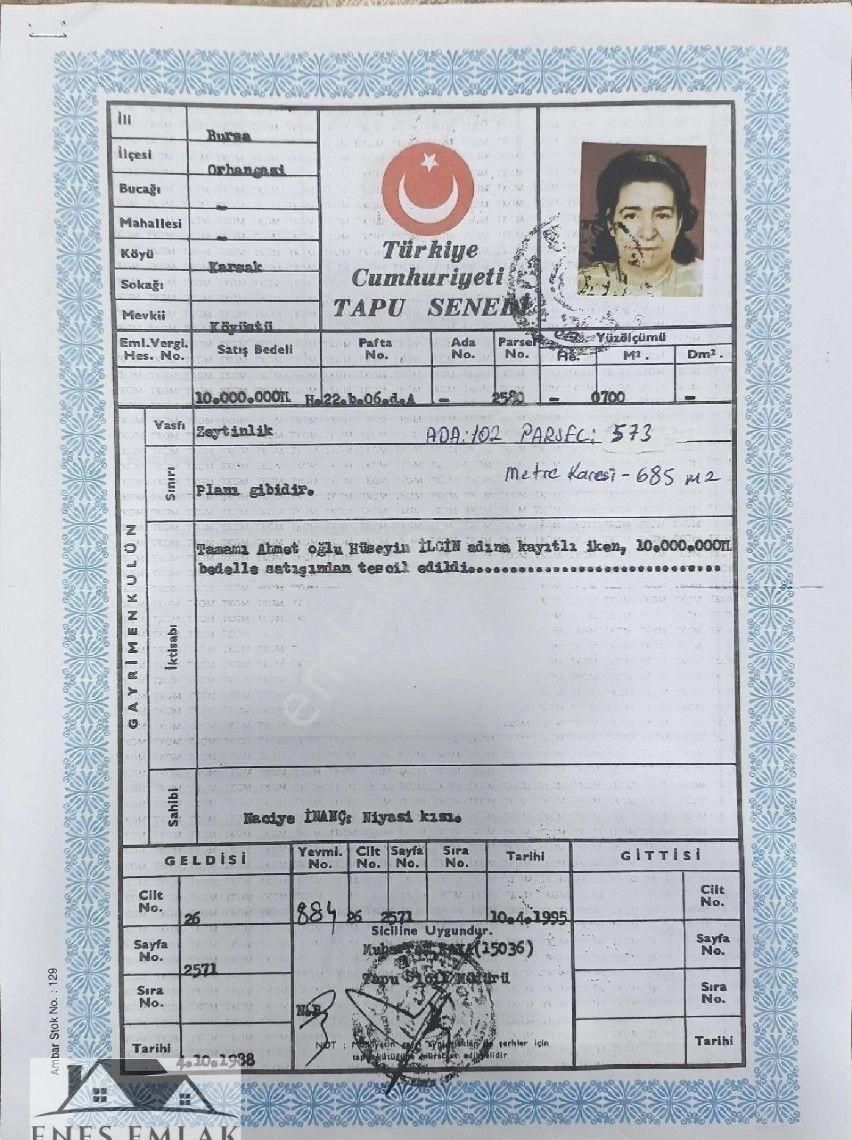 İli
Bursa
İlçesi
Orhangazi
Bucağı
-
Mahallesi
-
Köyü
Karsak
Sokağı
Mevkii
Köyüstü
Türkiye
Cumhuriyeti
TAPU SENEDİ
Eml.Vergi. Hes. No.
Satış Bedeli
Pafta No.
Ada No.
Parsel No.
Yüzölçümü
He.
M².
Dm².
10.000.000TL H.22.b.06.d.A - 2580 - 0700 -
GAYRİMENKULÜN
Vasfı
Zeytinlik
ADA:102 PARSEL: 573
Metre Karesi - 685 m2
Sınırı
Planı gibidir.
İktisabı
Tamamı Ahmet oğlu Hüseyin İLGİN adına kayıtlı iken, 10.000.000TL
bedelle satışından tescil edildi...............................
Sahibi
Naciye İNANÇ: Niyasi kızı.
GELDİSİ
Yevmi. No.
Cilt No.
Sayfa No.
Sıra No.
Tarihi
GİTTİSİ
Cilt No.
26
884 26 2571 10.4.1995
Cilt No.
Siciline Uygundur.
Sayfa No.
2571
(15036)
Tapu Sicil Müdürü
Sayfa No.
Sıra No.
Sıra No.
NOT :
şerhler için
Tarihi
4.10.1988
Tarihi
Ambar Stok No. : 129
ENES EMLAK